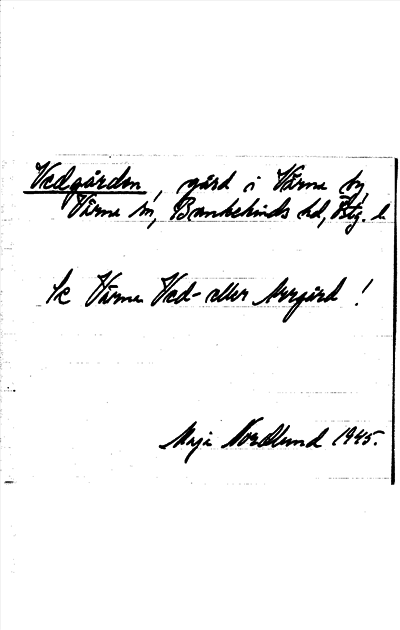 Vedgården, gård i Värna by,
Värna sn, Bankekinds hd, Östg. l
Se Värna Ved- eller Norrgård !
Maja Nordlund 1945.